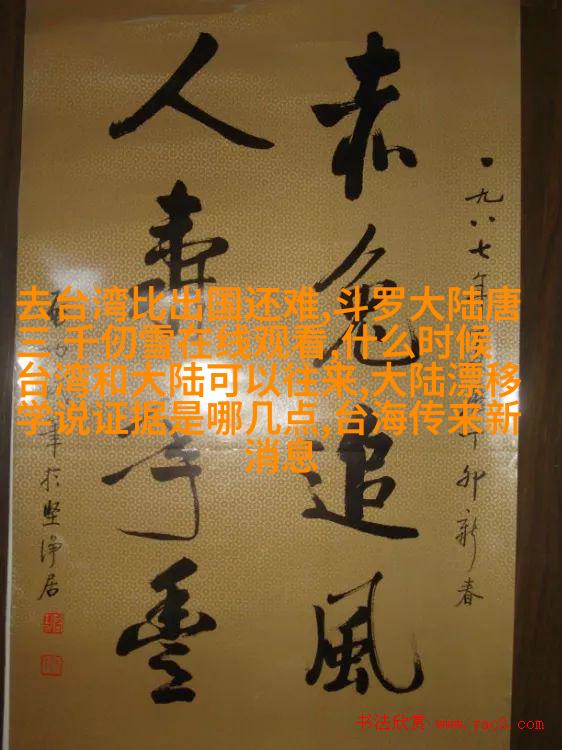 一九八七年 卯新春
赤兔追風
人壽年豐
於堅淨居
去台湾比出国还难,斗罗大陆唐
三 千仞雪在线观看,什么时候
台湾和大陆可以往来,大陆漂移
学说证据是哪几点,台海传来新
消息
书法欣赏 www.yac8.com